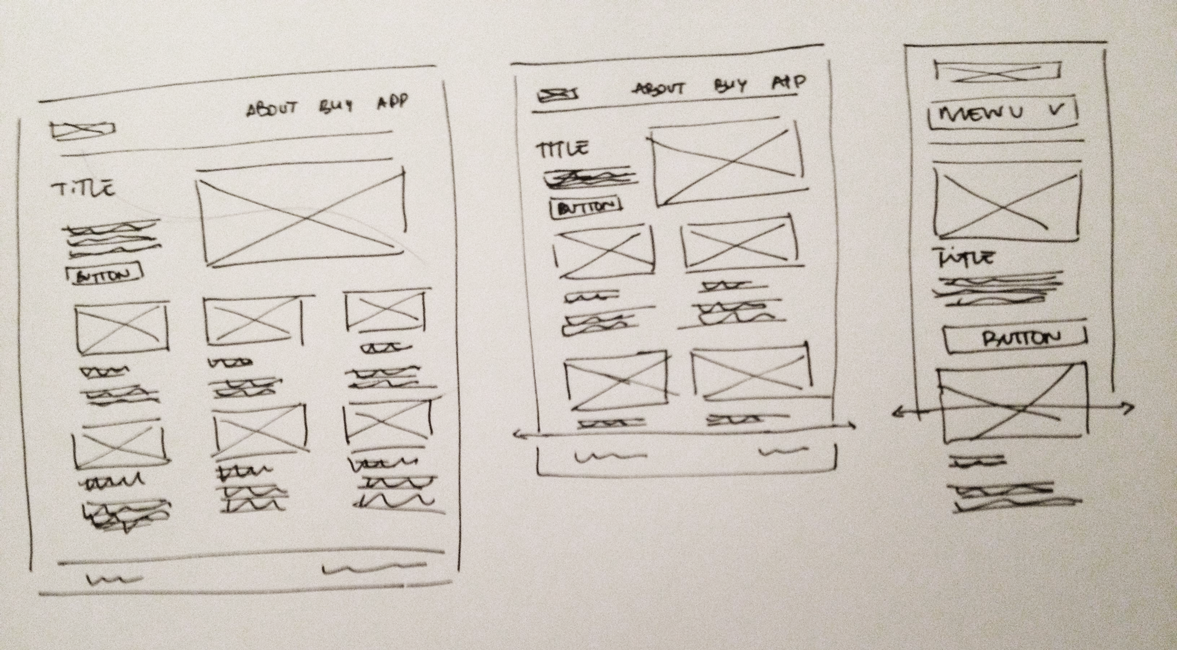 ABOUT BUY APP
TITLE
BUTTON
ABOUT BUY APP
TITLE
BUTTON
MENU V
TITLE
BUTTON